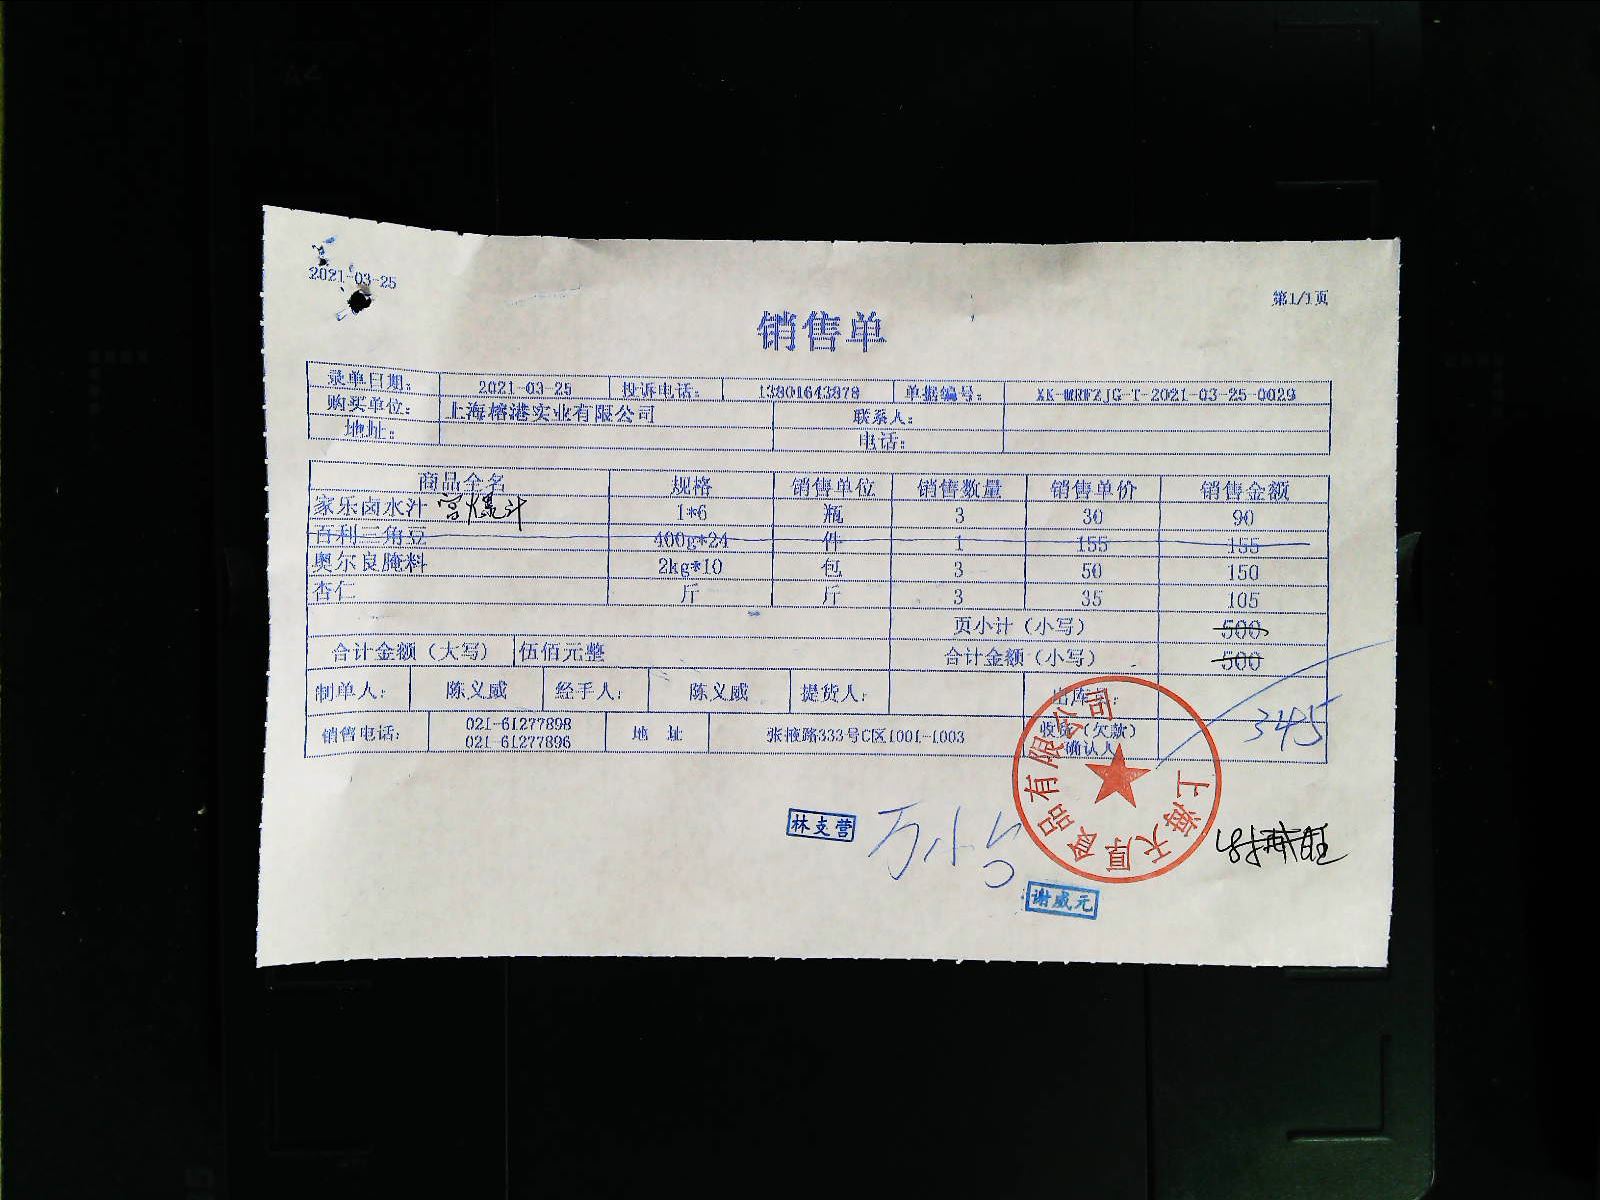 2021-03-25
第1/1页
销售单
录单日期： 2021-03-25 投诉电话： 13801643878 单据编号： XK-WRWZJG-T-2021-03-25-0029
购买单位： 上海榕港实业有限公司 联系人：
地址： 电话：
商品全名 规格 销售单位 销售数量 销售单价 销售金额
家乐卤水汁 宫爆汁 1*6 瓶 3 30 90
百利三角豆 400g*24 件 1 155 155
奥尔良腌料 2kg*10 包 3 50 150
杏仁 斤 斤 3 35 105
页小计（小写） 500
合计金额（大写） 伍佰元整 合计金额（小写） 500
制单人： 陈义威 经手人： 陈义威 提货人： 出库
345
销售电话： 021-61277898 地 址 张掖路333号C区1001-1003 收货（欠款）
021-61277896 确认人
上海天厚食品有限公司
林支营
万小台
谢威元